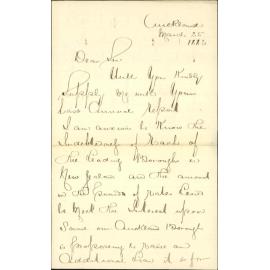 Auckland
March 25
1886
Dear Sir
Will you kindly
supply me with your
last Annual Report
I am anxious to know the
Indebtedness of each of
the leading Boroughs in
New Zealand and the amount
in the pound of rates
to meet the Interest upon
same our Auckland Borough
is proposing to raise an
additional